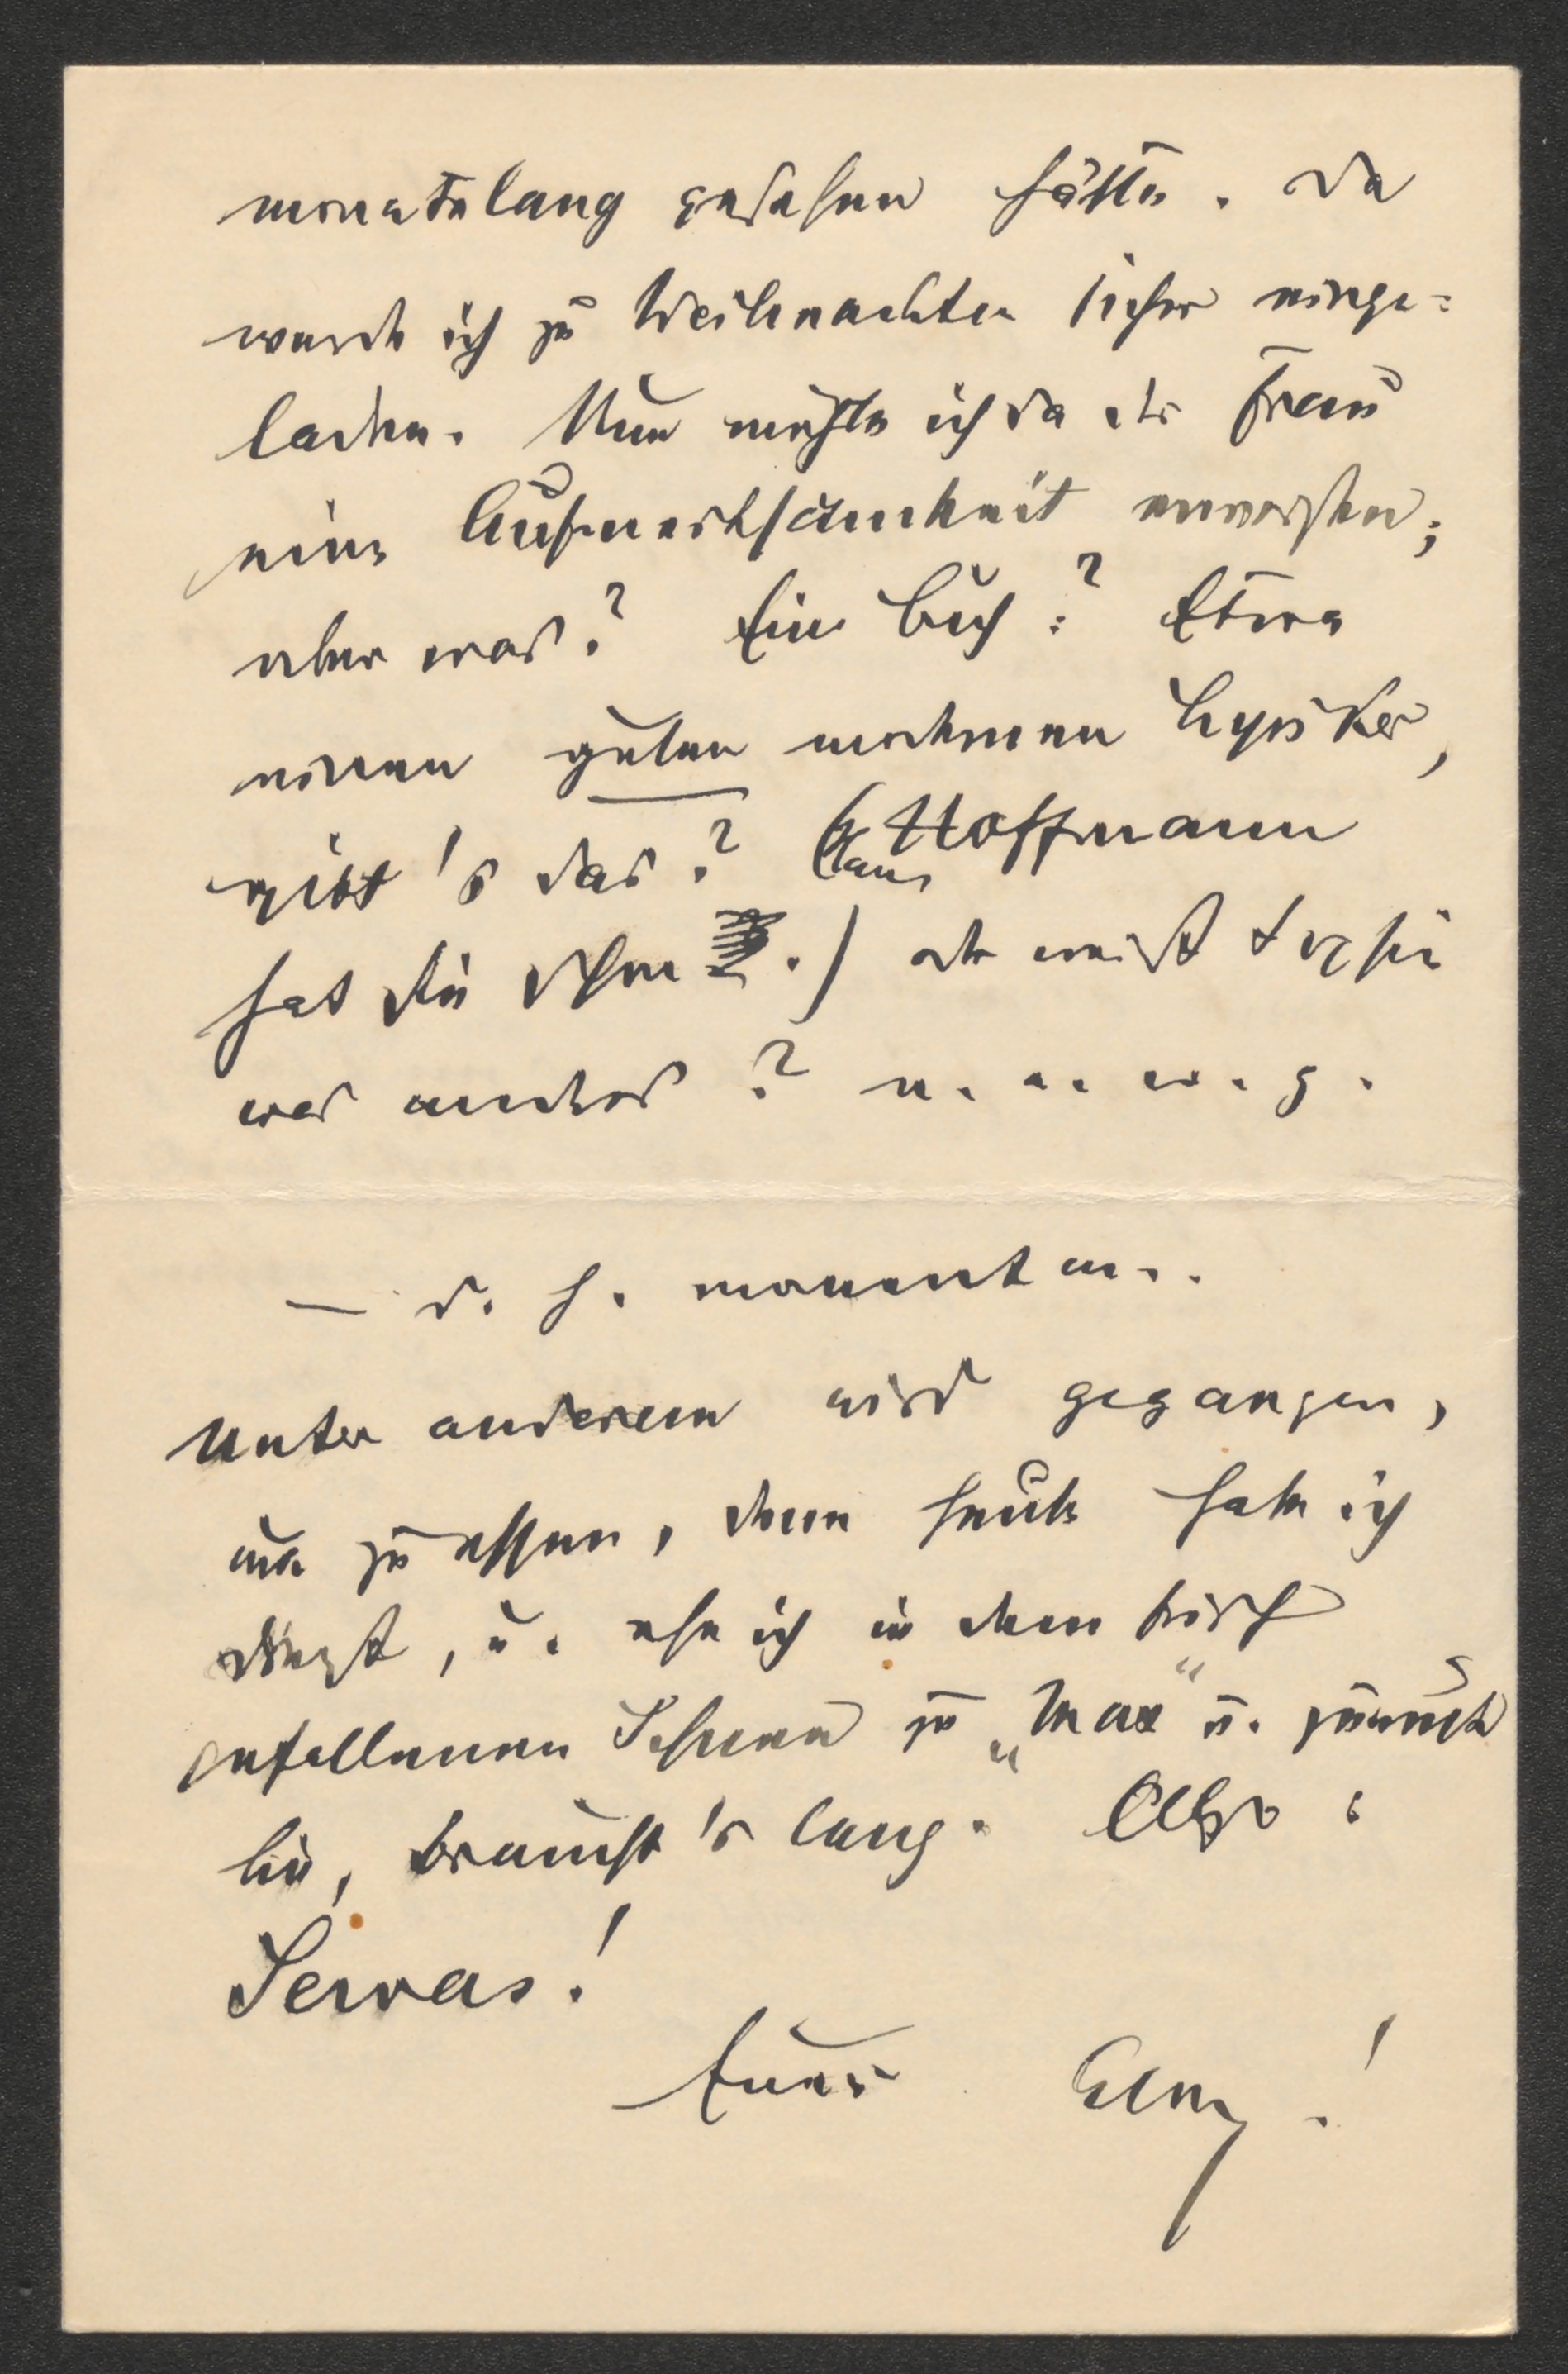 monatelang gesehen hätte. Da
werde ich zu Weihnachten sicher einge-
laden. Nun möchte ich da der Frau
eine Aufmerksamkeit erweisen;
aber was? Ein Buch? Etwa
einen guten modernen Lyriker,
gibt's das? (Hans Hoffmann
hat sie schon.) oder weißt Du
was anders? u. a. w. g.
— d. h. momentan..
Unter anderem wird gegangen,
um zu essen, denn heute habe ich
Dienst, u. ehe ich in dem frisch
gefallenen Schnee zu „Max“ u. zurück
bin, braucht's lang. Also:
Servas!
Euer !